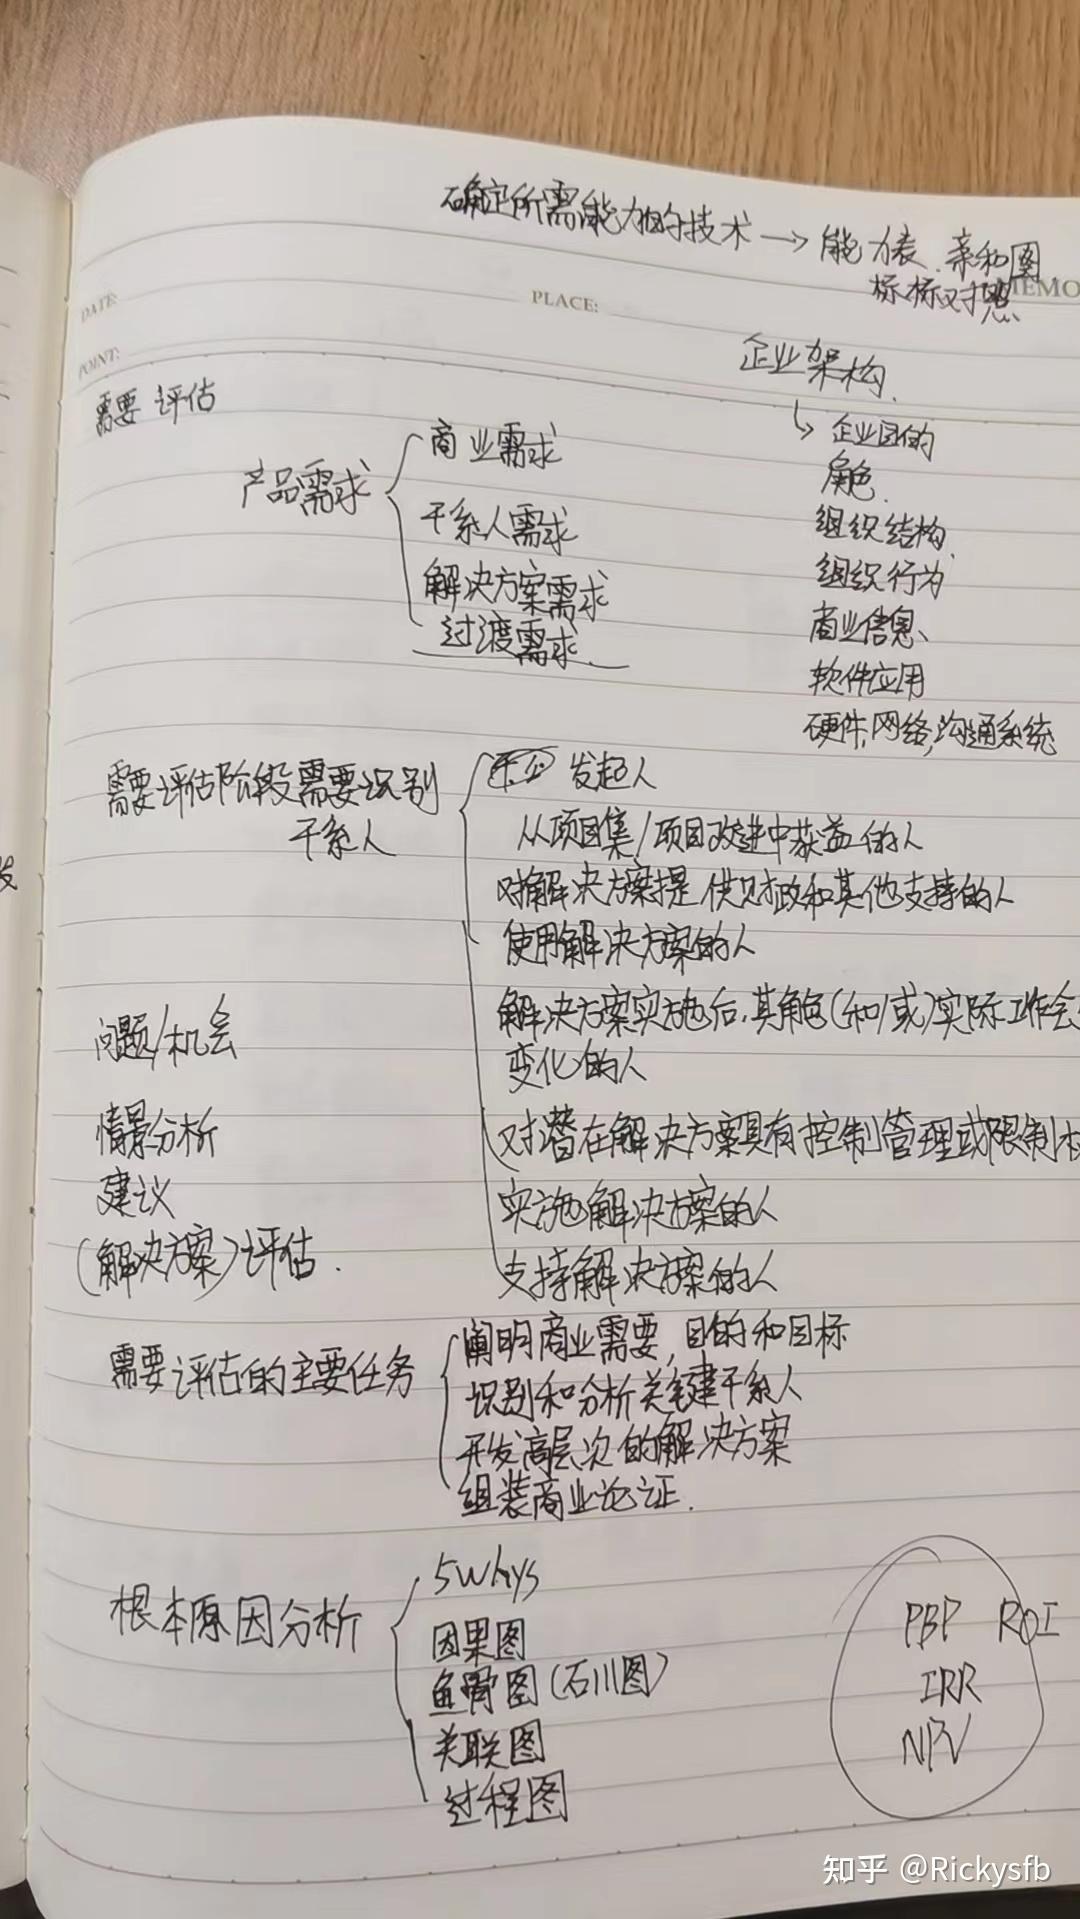 确定所需能力的技术 → 能力表、亲和图
标标对照
MEMO
DATE:
PLACE:
POINT:
企业架构
↳ 企业目的
角色
组织结构
组织行为
商业信息、
软件应用
硬件,网络,沟通系统
需要评估
产品需求
商业需求
干系人需求
解决方案需求
过渡需求
需要评估阶段需要识别
干系人
发起人
从项目集/项目改进中获益的人
对解决方案提供财政和其他支持的人
使用解决方案的人
解决方案实施后,其角色(和/或)实际工作会
变化的人
对潜在解决方案具有控制管理或限制
实施解决方案的人
支持解决方案的人
问题/机会
情景分析
建议
(解决方案)评估.
需要评估的主要任务
阐明商业需要,目的和目标
识别和分析关键干系人
开发高层次的解决方案
组装商业论证.
根本原因分析
5Whys
因果图
鱼骨图(石川图)
关联图
过程图
PBP ROI
IRR
NPV
知乎 @Rickysfb